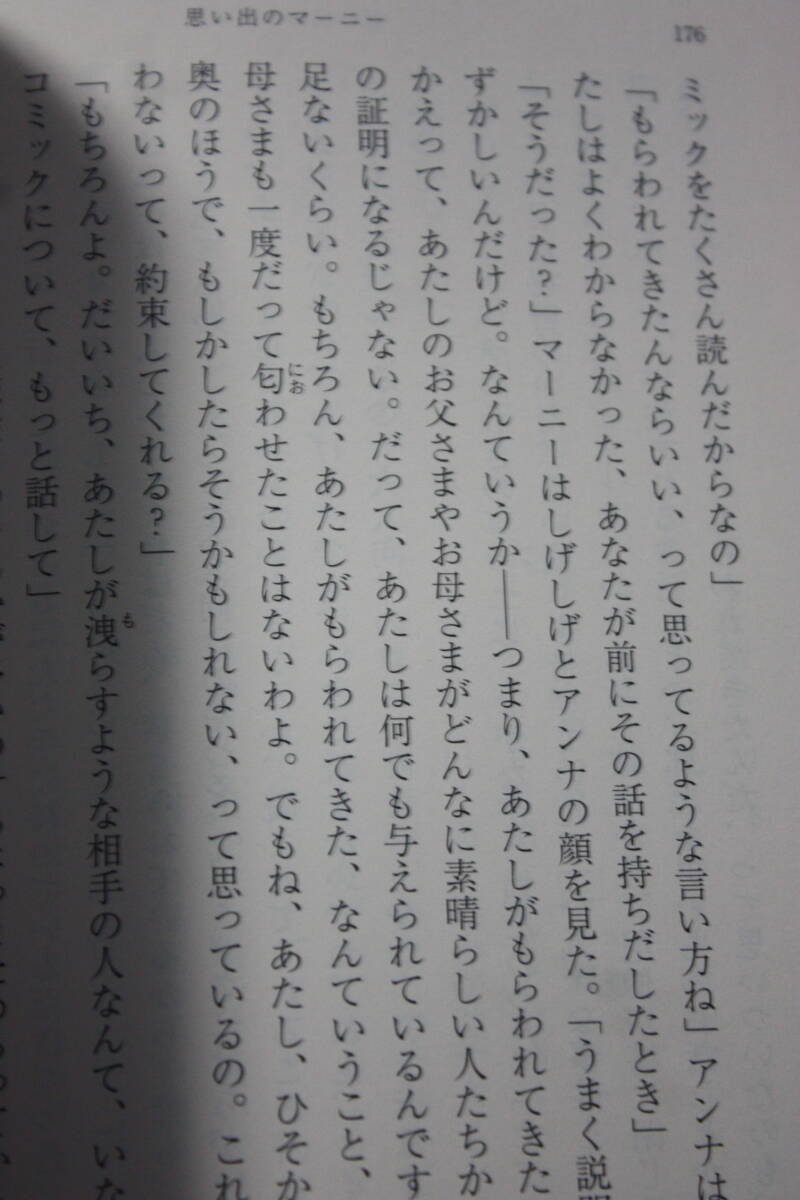 176
思い出のマーニー
ミックをたくさん読んだからなの」
「もらわれてきたんならいい、って思ってるような言い方ね」アンナは
たしはよくわからなかった、あなたが前にその話を持ちだしたとき」
「そうだった？」マーニーはしげしげとアンナの顔を見た。「うまく説明
ずかしいんだけど。なんていうか――つまり、あたしがもらわれてきた
かえって、あたしのお父さまやお母さまがどんなに素晴らしい人たちか
の証明になるじゃない。だって、あたしは何でも与えられているんです
足ないくらい。もちろん、あたしがもらわれてきた、なんていうこと、
母さまも一度だって匂わせたことはないわよ。でもね、あたし、ひそか
奥のほうで、もしかしたらそうかもしれない、って思っているの。これ
わないって、約束してくれる？」
「もちろんよ。だいいち、あたしが洩らすような相手の人なんて、いな
コミックについて、もっと話して」